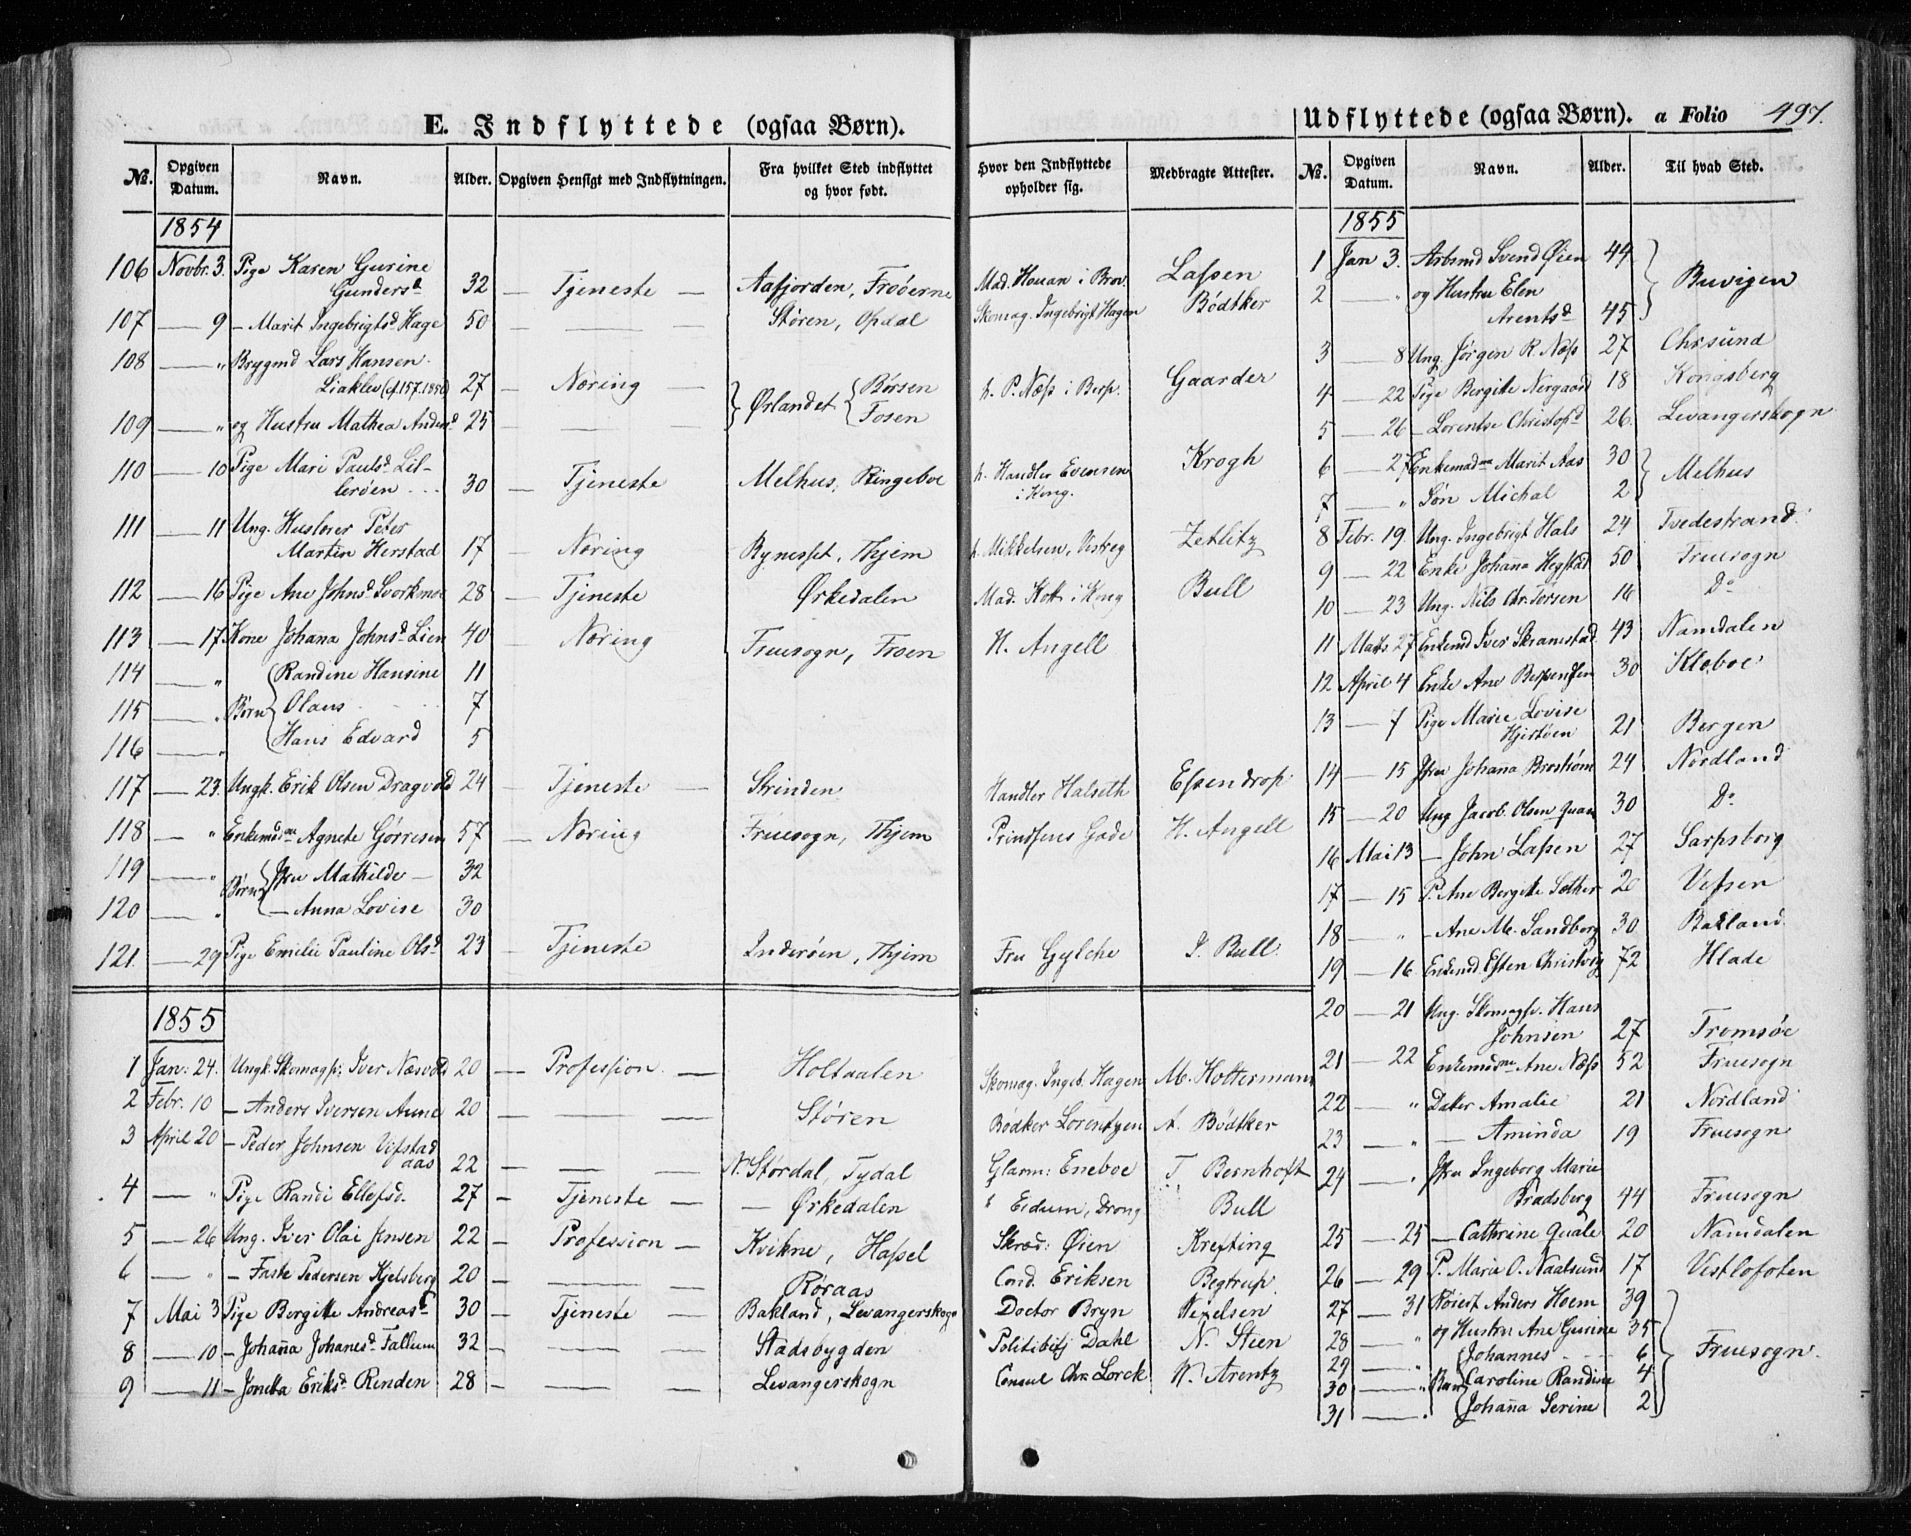 E. Indflyttede (ogsaa Børn).
No. Opgiven Datum. Navn. Alder. Opgiven Hensigt med Indflytningen. Fra hvilket Sted indflyttet og hvor født. Hvor den Indflyttede opholder sig. Medbragte Attester.
1854
106 Novbr. 3. Pige Karen Gurine
Gundersd 32 — Tjeneste — Aafjorden, Froöerne Mad. Houan i Brov. Lassen
107 — 9 — Marit Ingebrigtsd Hage 50 — — — Støren, Opdal Skomag. Ingebrigt Hagen Bödtker
108 — " Brygmd Lars Hansen
Liaklev 27 — Næring — Ørlandet Børsen h. P. Næss i Bersp. Gaarder
109 — " og Hustru Mathea Andersd 25 — — Fosen
110 — 10 Pige Mari Paulsd Lil-
lerøen 30 — Tjeneste Melhus, Ringeboe h. Handler Evensen i Kong. Krogh
111 — 11 Ung. Huslærer Peter
Martin Herstad 17 — Næring Bynesset, Thjem h. Mikkelsen, Vestreg Zetlitz
112 — 16 Pige Ane Johnsd Svorkmoe 28 — Tjeneste Ørkedalen Mad. Kok i Kong Bull
113 — 17 Kone Johana Johnsd Lien 40 — Næring Fruesogn, Froen H. Angell
114 — " Børn Randine Hansine 11
115 — " Olaus 7
116 — " Hans Edvard 5
117 — 23. Ungk. Erik Olsen Dragvold 24 — Tjeneste — Strinden Handler Halseth Essendrop
118 — " Enkemadme Agnete Gjørresen 57 — Næring Fruesogn, Thjem Prindsens Gade H. Angell
119 — " Børn Jfru Mathilde — 32
120 — " — Anna Lovise 30
121 — 29 Pige Emilie Pauline Olsd 23 — Tjeneste Inderøen, Thjem Fru Gylche I. Bull
1855
1 Jan: 24. Ungk. Skomagsv: Iver Næsvold 20 — Profession — Holtaalen Skomag. Ingeb. Hagen M. Holtermann
2 Febr. 10 — Anders Iversen Aune 20 — — Støren Bødker Lorentzen A. Bödtker
3 April 20 — Peder Johnsen Vifstad
aas 22 — — — N. Størdal, Tydal Glarm: Eneboe T. Bernhoft
4 — " Pige Randi Ellefsd. 27 — Tjeneste — Ørkedalen " Eidum, Drong Bull
5 — 26 Ung. Iver Olai Jensen 22 — Profession — Kvikne, Hassel Skræd: Øien Krefting
6 — " — Faste Pedersen Kjelsberg 20 — — — Røraas Cond. Eriksen Begtrup.
7 Mai 3 Pige Bergitte Andreasd 30 — Tjeneste — Bakland, Levangerskogn Doctor Bryn Nexelsen
8 — 10 — Johaña Johanesd Fallum 32 — — — Stadsbygden Politibetj Dahl N. Stien
9 — 11 — Jonetta Eriksd Renden 28 — — — Levangerskogn Consul Chr. Lorck N. Arentz
Udflyttede (ogsaa Børn). a Folio 497.
No. Opgiven Datum. Navn. Alder. Til hvad Sted.
1855
1 Jan 3. Arbsmd Svend Øien 44 Buvigen
2 " og Hustru Elen
Arentsd 45
3 — 8 Ung. Jørgen R. Næss 27 Chrsund
4 — 22 Pige Bergitte Nergaard 18 Kongsberg
5 — 26 — Lorentse Christofd 26 Levangerskogn
6 — 27 Enkemadme Marit Aas 30 Melhus
7 — " Søn Michal 2
8 Febr. 19. Ung. Ingebrigt Hals 24 Tvedestrand
9 — 22 Enke Johaña Hegstad 50 Fruesogn
10 — 23 Ung. Nils Chr. Torsen 16 Do
11 Marts 27 Enkemd Iver Skramestad 43 Namdalen
12 April 4 Enke Ane Bersvendsen 30 Klæboe
13 — 7 Pige Marie Lovise
Hjerstøen 21 Bergen
14 — 15 Jfru Johana Broström 24 Nordland
15 — 20 Ung Jacob Olsen Quam 30 Do
16 Mai 13 — John Lassen 27 Sarpsborg
17 — 15 P. Ane Bergitte Sæther 20 Vefsen
18 — " — Ane M. Sandberg 30 Bakland
19 — 16 Enkemd. Esten Christoph 72 Hlade
20 — 21 Ung. Skomagsv. Hans
Johnsen 27 Tromsøe
21 — 22 Enkemadme Ane Næss 52 Fruesogn
22 — " Datter Amalie 21 Nordland
23 — " — Aminda 19 Fruesogn
24 — " Jfru Ingeborg Marie
Bradsberg 44 Fruesogn
25 — 25 — Cathrine Quale 20 Namdalen
26 — 29 P. Marie O. Naalsund 17 Vestlofoten
27 — 31 Røiert Anders Hoem 39 Fruesogn.
28 — " og Hustru Ane Gurine 35
29 — " Johannes 6
30 — " Børn Caroline Randine 4
31 — " Johaña Serine 2